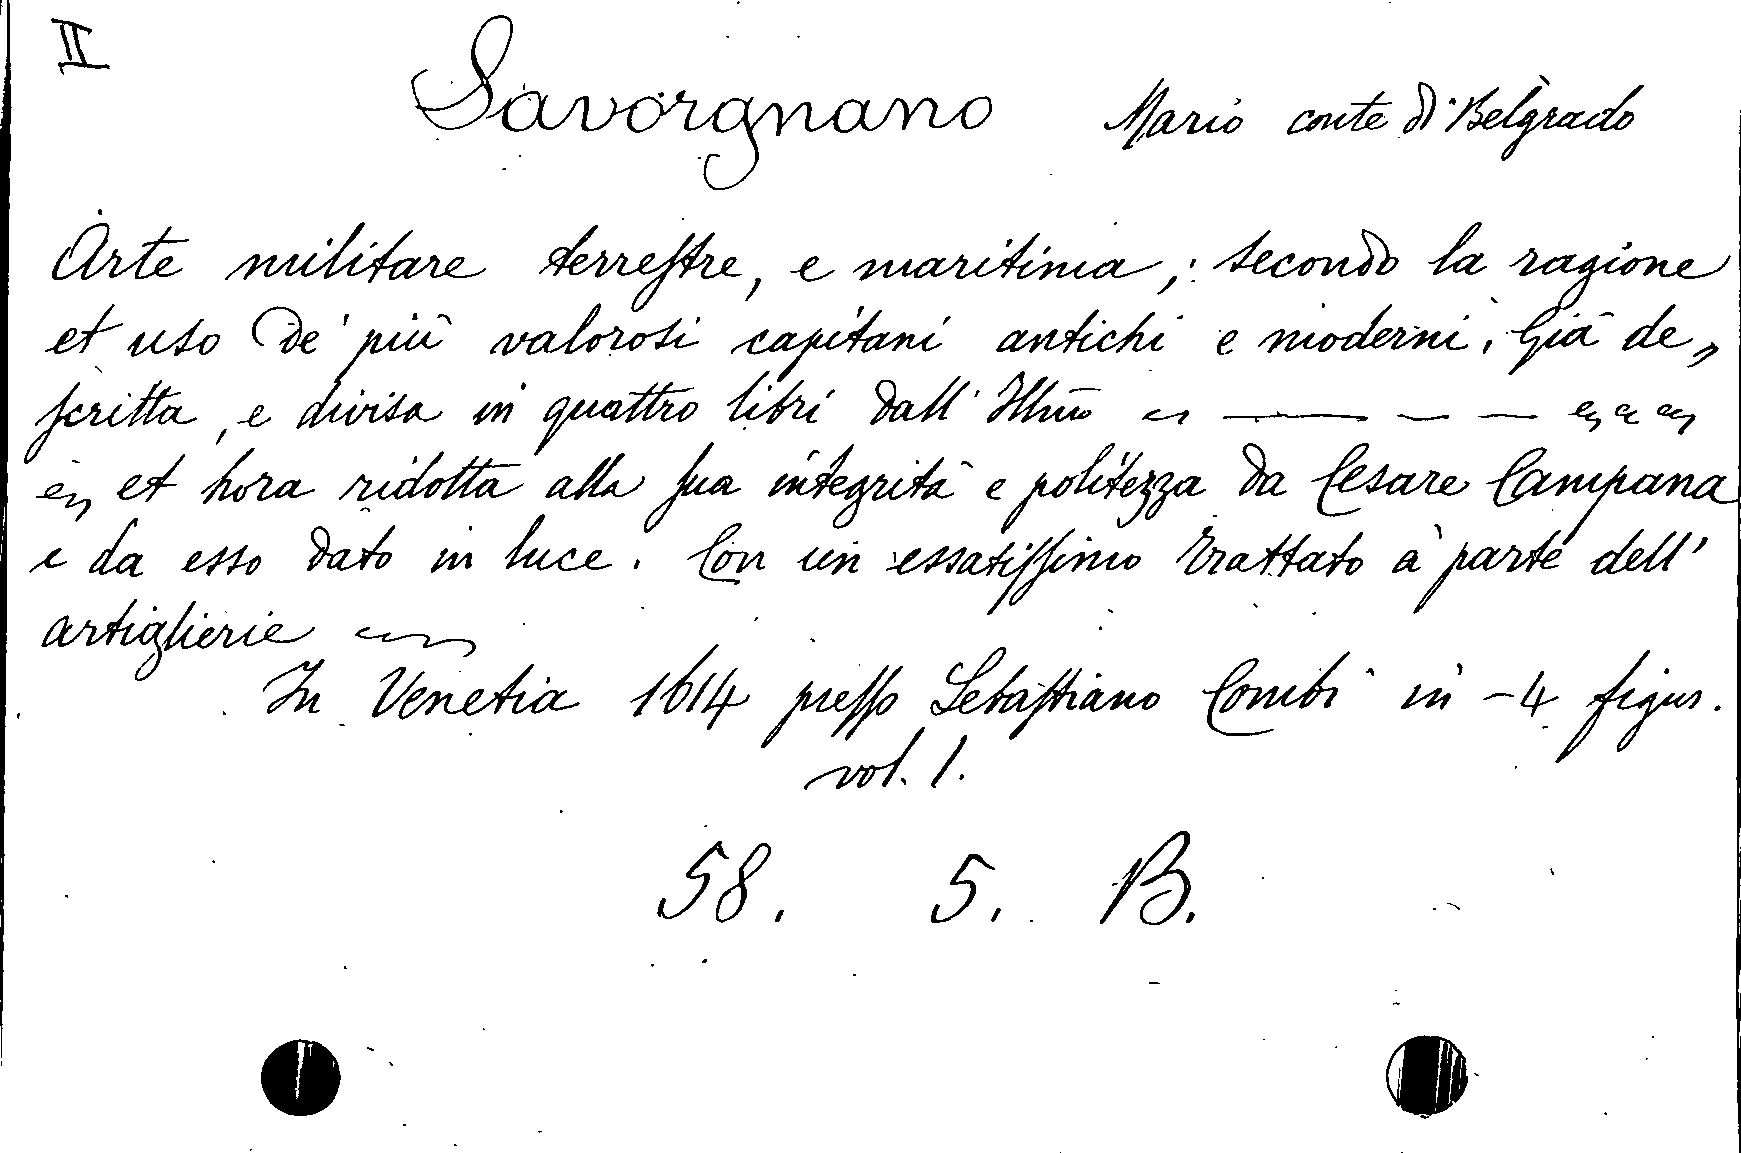 II
Savorgnano Mario conte di Belgrado
Arte militare terrestre, e maritima; secondo la ragione
et uso de' più valorosi capitani antichi e moderni. Già de„
scritta, e divisa in quattro libri dall' Illmo
et hora ridotta alla sua integrità e politezza da Cesare Campana
e da esso dato in luce. Con un essatissimo trattato a parte dell'
artiglierie
In Venetia 1614 presso Sebastiano Combi in -4 figur.
vol. 1.
58. 5. B.